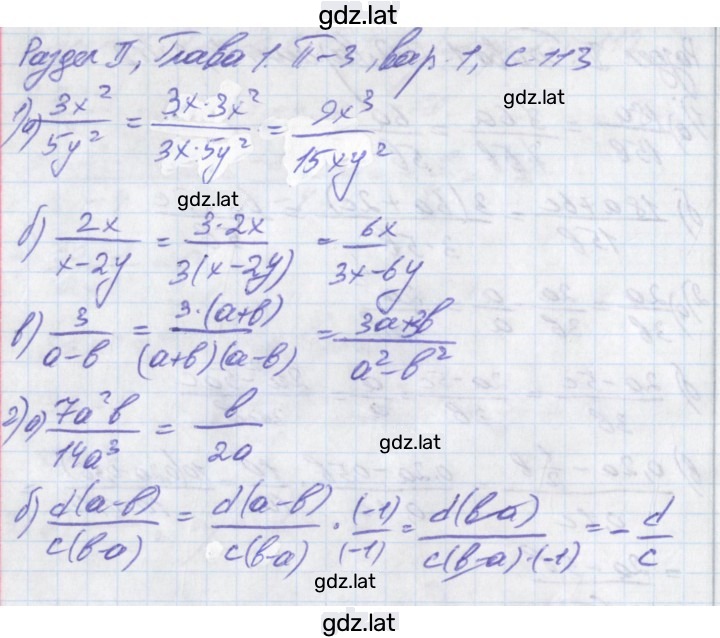 gdz.lat
Раздел II, Глава 1, П-3, вар. 1, с 113
gdz.lat
1) а) 3x²/5y² = 3x·3x²/3x·5y² = 9x³/15xy²
gdz.lat
б) 2x/x-2y = 3·2x/3(x-2y) = 6x/3x-6y
в) 3/a-b = 3·(a+b)/(a+b)(a-b) = 3a+3b/a²-b²
2) а) 7a²b/14a³ = b/2a
gdz.lat
б) d(a-b)/c(b-a) = d(a-b)/c(b-a) · (-1)/(-1) = d(b-a)/c(b-a)·(-1) = - d/c
gdz.lat
gdz.lat